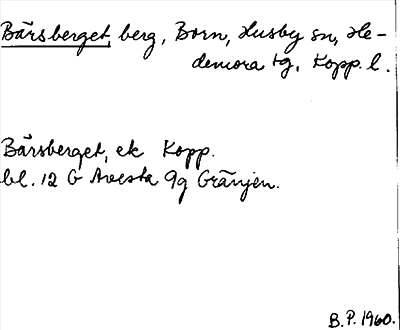 Bärsberget, berg, Born, Husby sn, He-
demora tg, Kopp. l.
Bärsberget, ek Kopp.
bl. 12 G Avesta 9g Gränjen.
B.P. 1960.